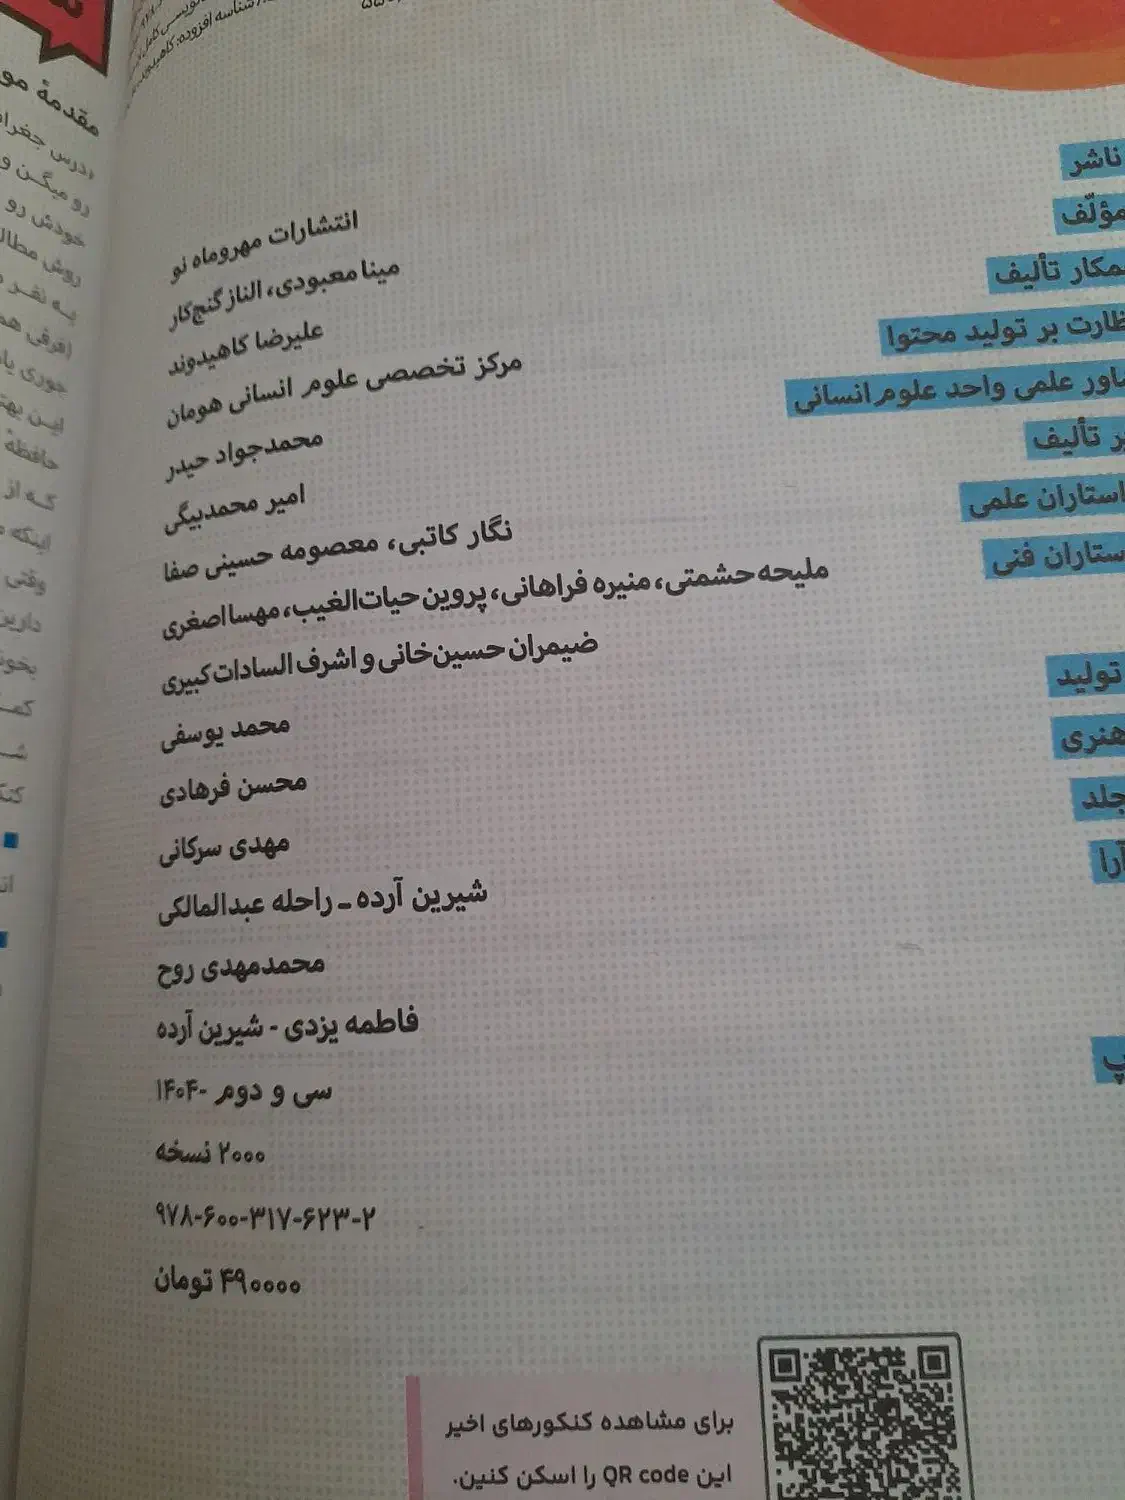 شناسه افزوده: کاهیدوند،
ناشر
انتشارات مهروماه نو
مؤلّف
مینا معبودی، الناز گنج‌کار
همکار تألیف
علیرضا کاهیدوند
نظارت بر تولید محتوا
مرکز تخصصی علوم انسانی هومان
علمی واحد علوم انسانی
محمدجواد حیدر
تألیف
امیر محمدبیگی
علمی
نگار کاتبی، معصومه حسینی صفا
فنی
ملیحه حشمتی، منیره فراهانی، پروین حیات‌الغیب، مهسا اصغری
ضیمران حسین‌خانی و اشرف السادات کبیری
تولید
محمد یوسفی
هنری
محسن فرهادی
جلد
مهدی سرکانی
آرا
شیرین آرده ـ راحله عبدالمالکی
محمدمهدی روح
فاطمه یزدی - شیرین آرده
سی و دوم -۱۴۰۴
۲۰۰۰ نسخه
۹۷۸-۶۰۰-۳۱۷-۶۲۳-۲
۴۹۰۰۰۰ تومان
برای مشاهده کنکورهای اخیر
این QR code را اسکن کنین.
مقدمهٔ
درس
رو میگن و
خودش رو
روش
به نفر
جوری
این
حافظهٔ
که از
اینکه
وقتی